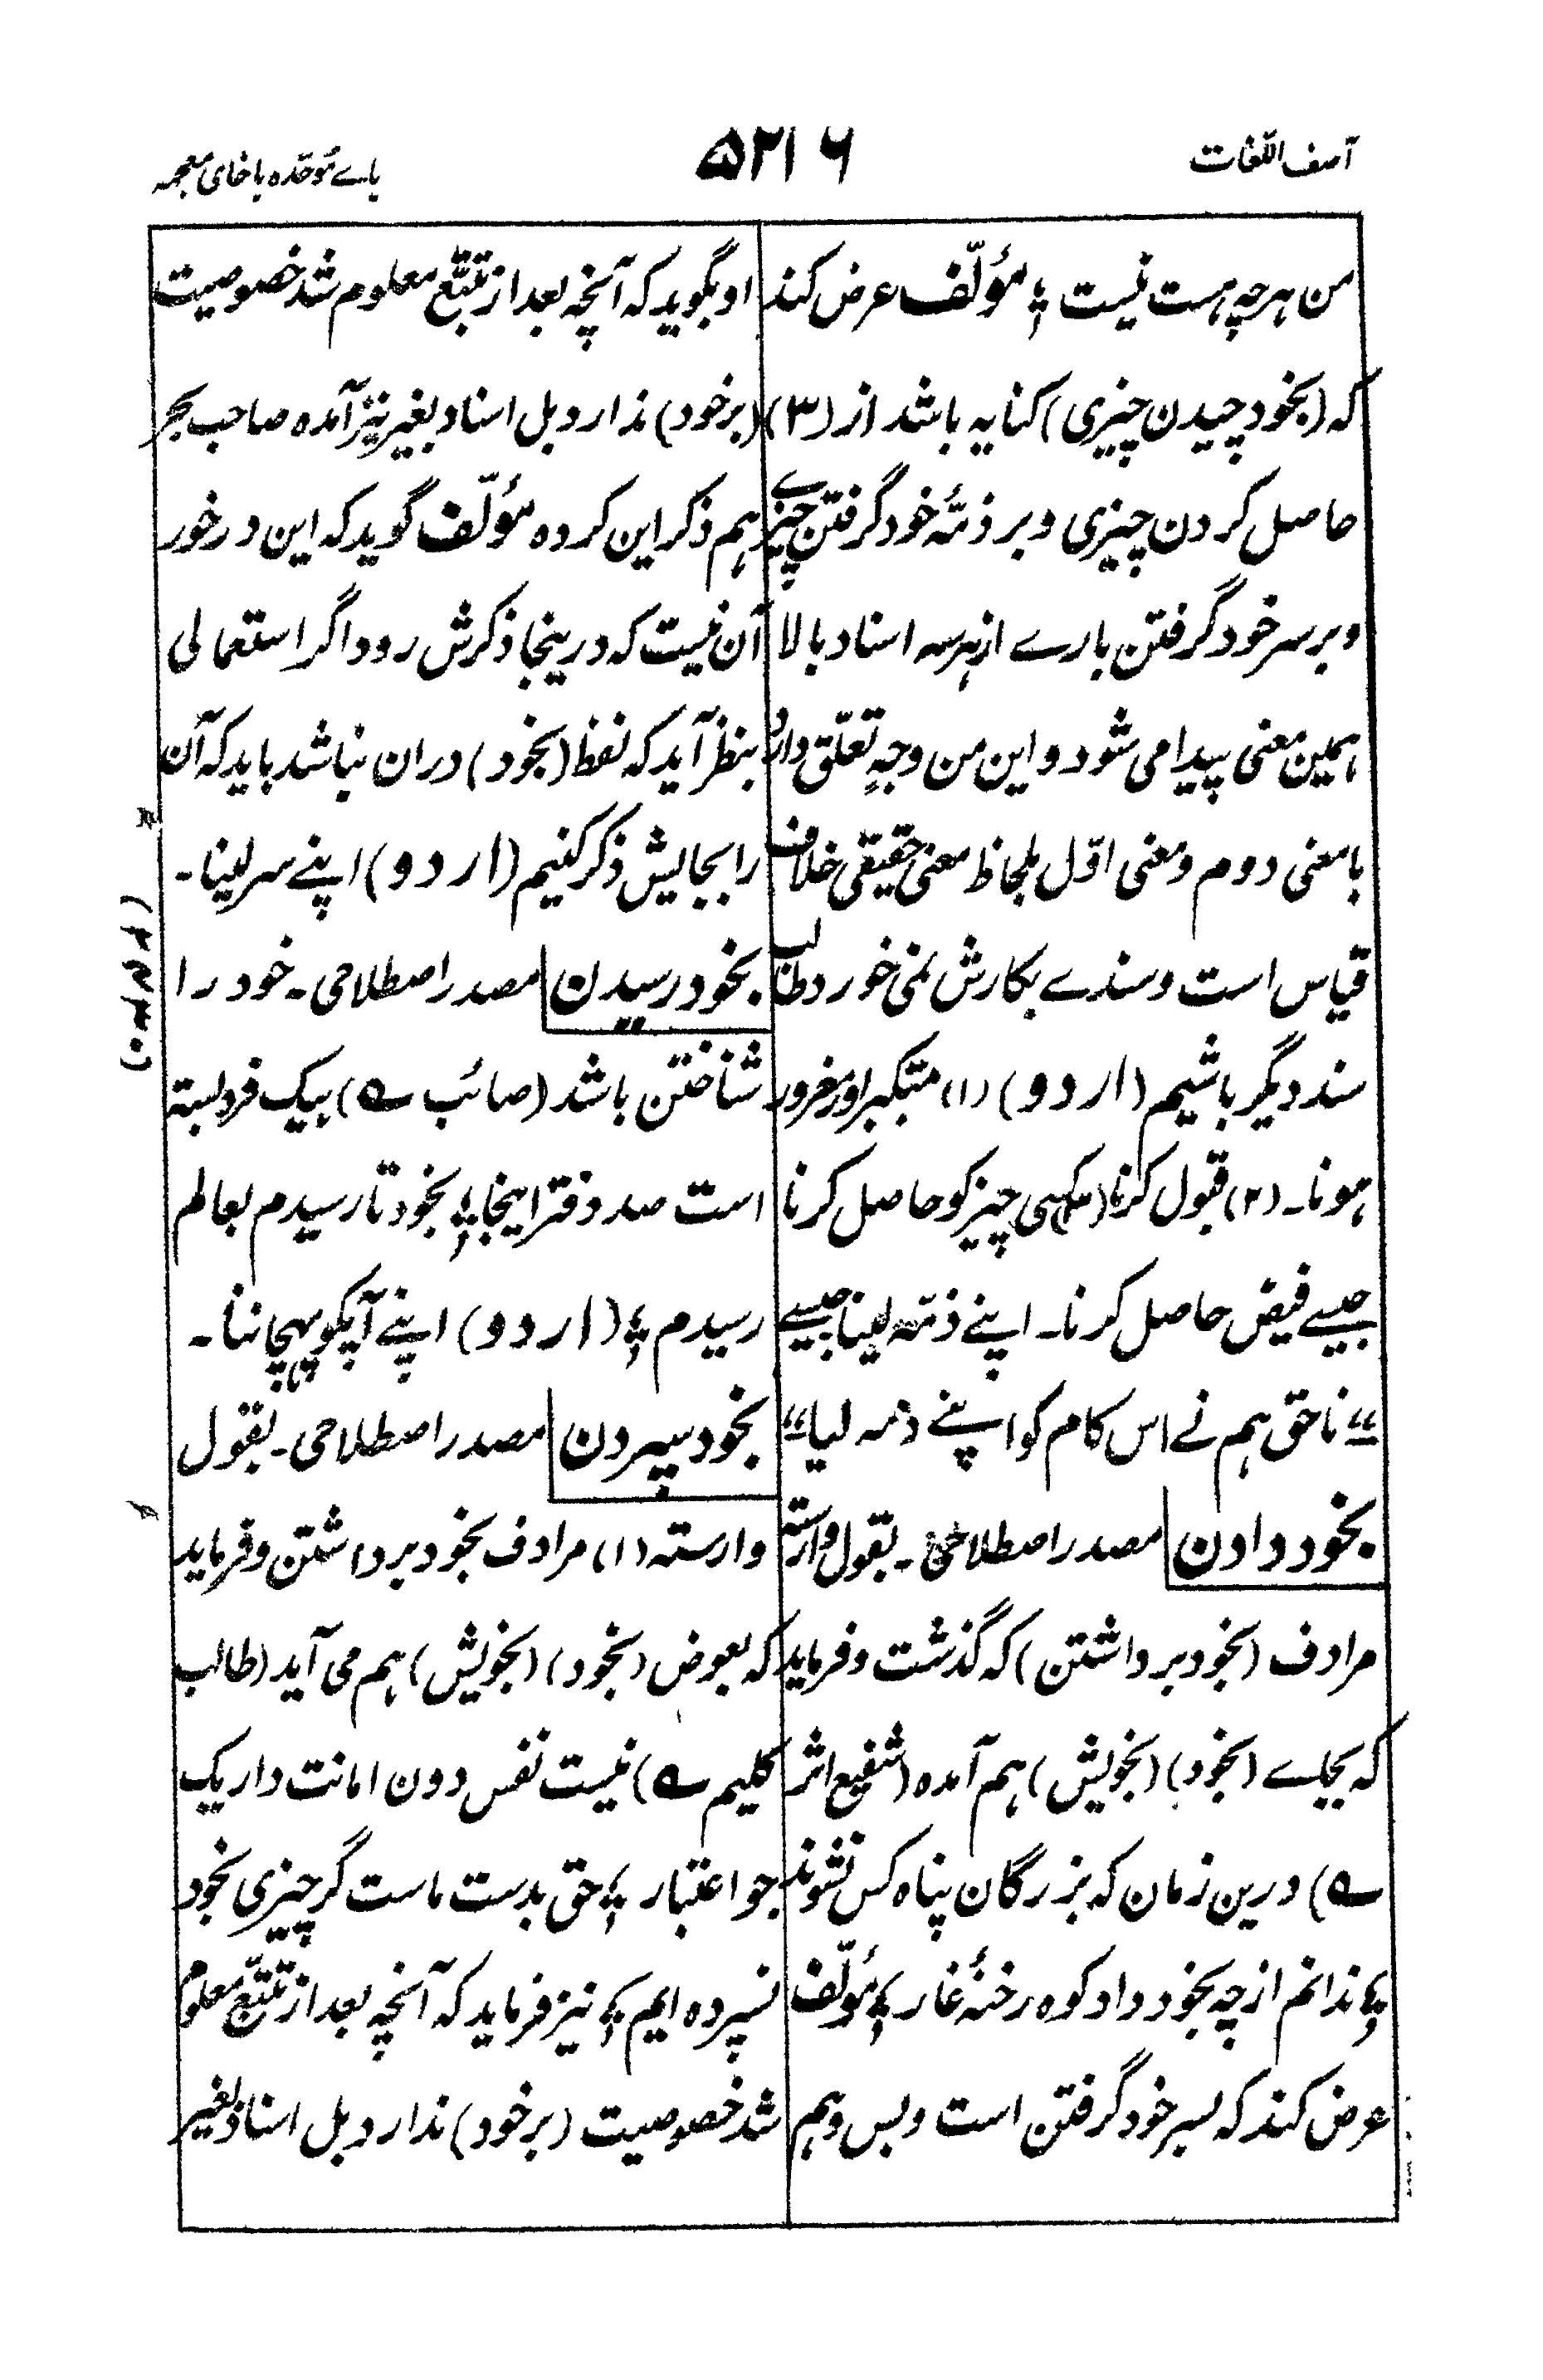 آصف اللغات
۵۲۱۶
بائے موحّدہ با خای معجمہ
من ہرچہ ہست نیست ؛ مؤلّف عرض کند
کہ (بخود چیدن چیزی) کنایہ باشد از (۳)
حاصل کردن چیزی و بر ذمّۂ خود گرفتن چیزے
و بر سر خود گرفتن بارے از ہر سہ اسناد بالا
ہمین معنی پیدا می شود و این من وجہٍ تعلّق دارد
با معنی دوم و معنی اوّل بلحاظ معنی حقیقی خلاف
قیاس است و سندے بکارش نمی خورد طالب
سند دیگر باشیم (اردو) (۱) متکبر اور مغرور
ہونا۔ (۲) قبول کرنا (۳) کسی چیز کو حاصل کرنا
جیسے فیض حاصل کرنا۔ اپنے ذمّہ لینا جیسے
“ ناحق ہم نے اس کام کو اپنے ذمہ لیا ”
بخود دادن مصدر اصطلاحی۔ بقول وارستہ
مرادف (بخود برداشتن) کہ گذشت و فرماید
کہ بجاے (بخود) (بخویش) ہم آمدہ (شفیع اثر
؎) درین زمان کہ بزرگان پناہ کس نشوند
؛ ندانم از چہ بخود داد کوہ رخنۂ غار ؛ مؤلّف
عرض کند کہ بسر خود گرفتن است و بس و ہم
او بگوید کہ آنچہ بعد از تتبّع معلوم شد خصوصیت
(بر خود) ندارد بل اسناد بغیر نیز آمدہ صاحب بحر
ہم ذکر این کردہ مؤلّف گوید کہ این در خور
آن نیست کہ درینجا ذکرش رود اگر استعمالی
بنظر آید کہ لفظ (بخود) دران نباشد باید کہ آن
را بجایش ذکر کنیم (اردو) اپنے سر لینا۔
بخود رسیدن مصدر اصطلاحی۔ خود را
شناختن باشد (صائب ؎) بیک فرد بستہ
است صد دفتر اینجا ؛ بخود تا رسیدم بعالم
رسیدم ؛ (اردو) اپنے آپکو پہچاننا۔
بخود سپردن مصدر اصطلاحی۔ بقول
وارستہ (۱) مرادف بخود برداشتن و فرماید
کہ بعوض (بخود) (بخویش) ہم می آید (طالب
کلیم ؎) نیست نفس دون امانت دار یک
جو اعتبار ؛ حق بدست ماست گر چیزی بخود
نسپردہ ایم ؛ نیز فرماید کہ آنچہ بعد از تتبّع معلوم
شد خصوصیت (بر خود) ندارد بل اسناد بغیر